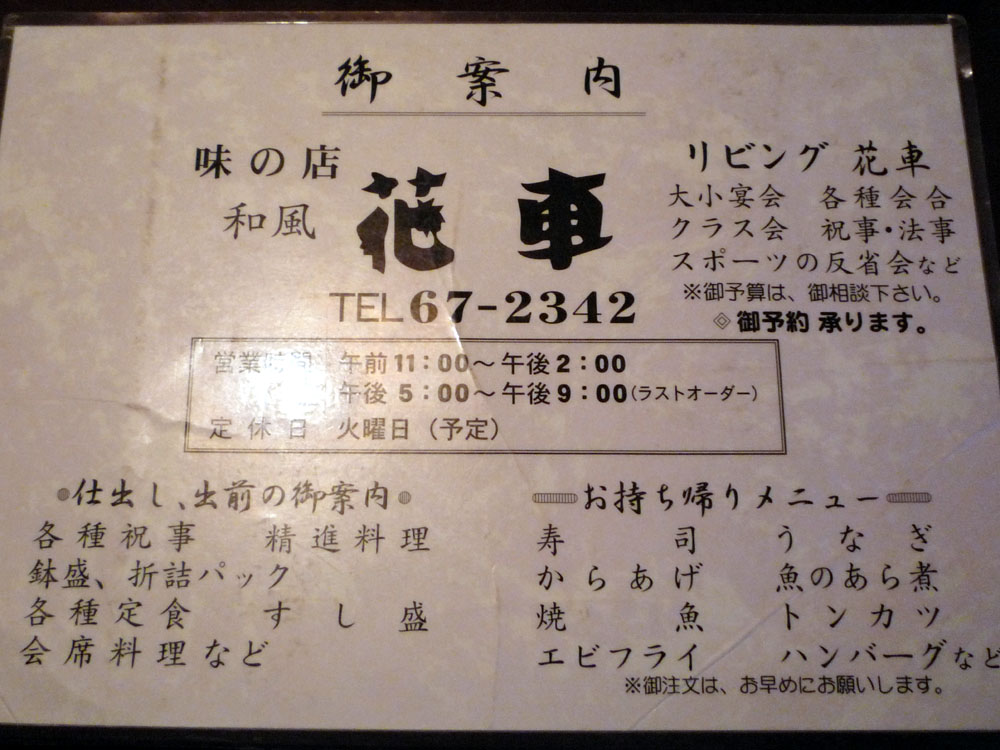 御案内
味の店
和風
花車
TEL 67-2342
リビング 花車
大小宴会 各種会合
クラス会 祝事・法事
スポーツの反省会など
※御予算は、御相談下さい。
◈御予約 承ります。
営業時間 午前11：00～午後2：00
午後5：00～午後9：00(ラストオーダー)
定休日 火曜日（予定）
●仕出し、出前の御案内●
各種祝事 精進料理
鉢盛、折詰パック
各種定食 すし盛
会席料理など
お持ち帰りメニュー
寿司 うなぎ
からあげ 魚のあら煮
焼魚 トンカツ
エビフライ ハンバーグなど
※御注文は、お早めにお願いします。